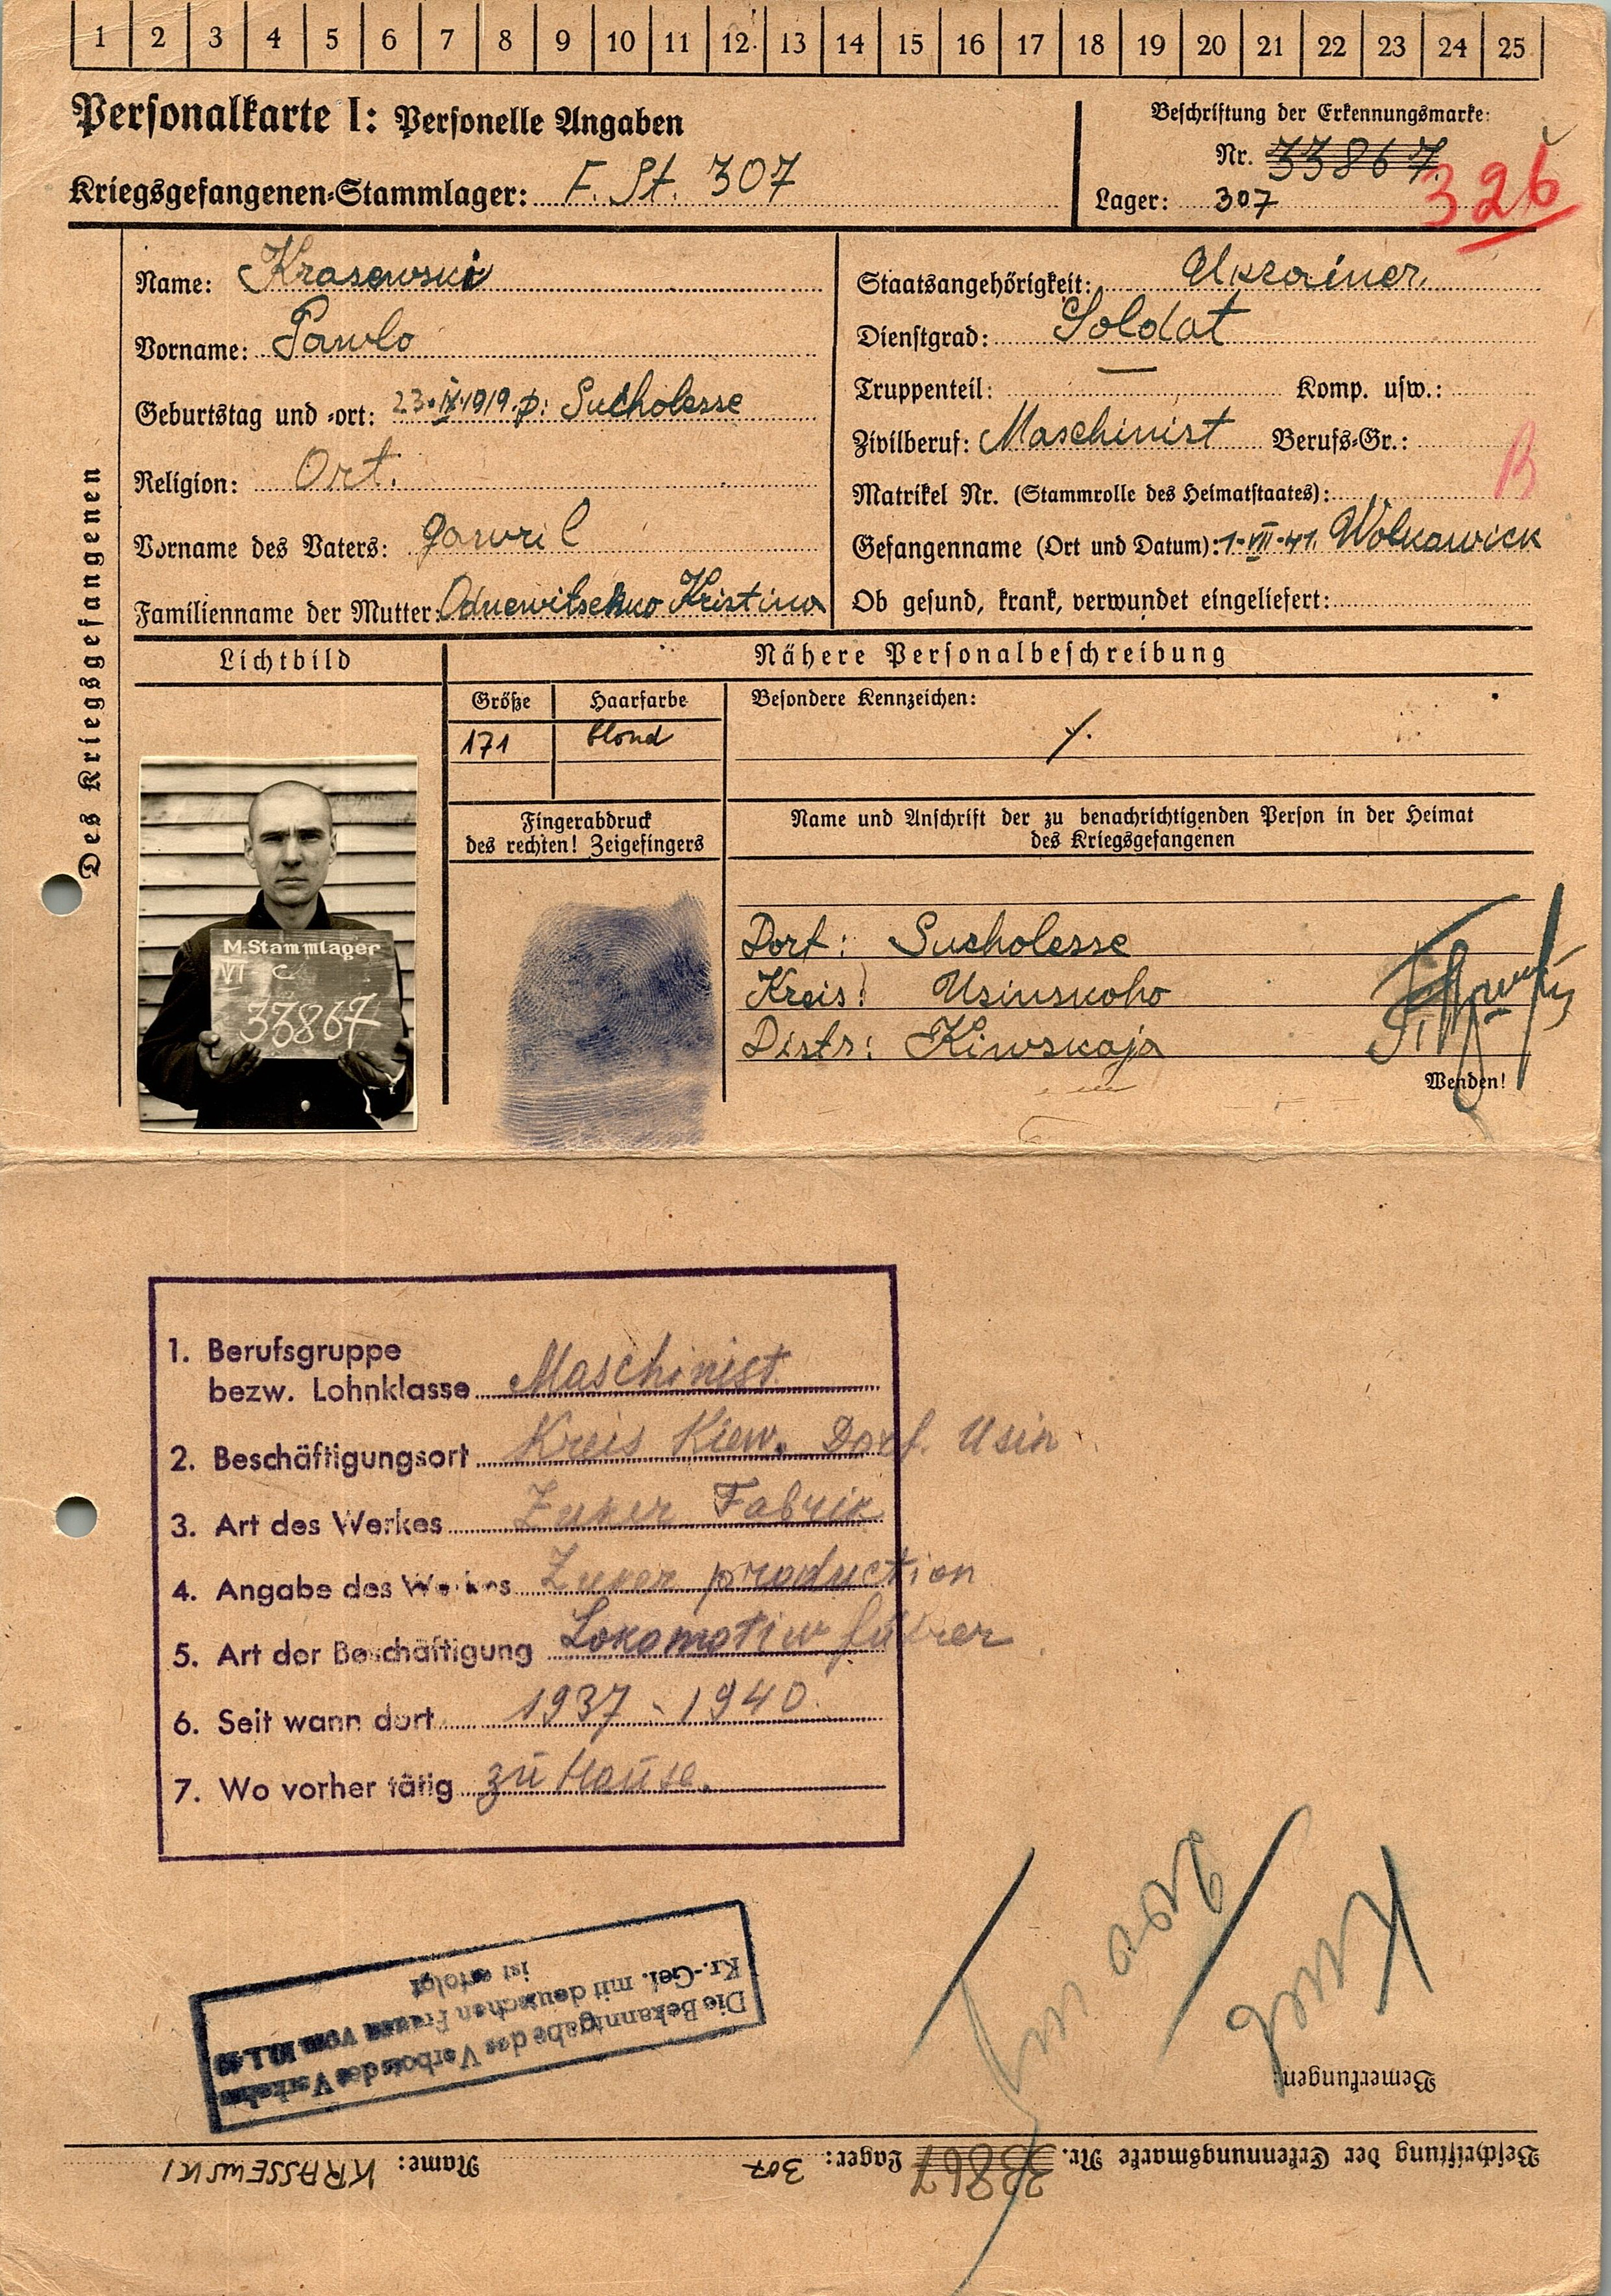 1 2 3 4 5 6 7 8 9 10 11 12 13 14 15 16 17 18 19 20 21 22 23 24 25
Personalkarte I: Personelle Angaben
Kriegsgefangenen-Stammlager: F. St. 307
Beschriftung der Erkennungsmarke:
Nr. 33867
326
Lager: 307
Des Kriegsgefangenen
Name: Krasewski
Vorname: Pawlo
Geburtstag und -ort: 23.IX.1919. p: Sucholesse
Religion: Ort.
Vorname des Vaters: gawril
Familienname der Mutter: Kristina
Staatsangehörigkeit: Ukrainer
Dienstgrad: Soldat
Truppenteil: Komp. usw.:
Zivilberuf: Maschinist Berufs-Gr.:
B
Matrikel Nr. (Stammrolle des Heimatstaates):
Gefangenname (Ort und Datum): 1.VII.41. Wolkawick
Ob gesund, krank, verwundet eingeliefert:
Lichtbild
Nähere Personalbeschreibung
Größe Haarfarbe Besondere Kennzeichen:
171 blond
Fingerabdruck
des rechten! Zeigefingers
Name und Anschrift der zu benachrichtigenden Person in der Heimat
des Kriegsgefangenen
M.Stammlager
VI C
33867
Dorf: Sucholesse
Kreis: Usinskoho
Distr: Kiwskaja
Wenden!
1. Berufsgruppe
bezw. Lohnklasse Maschinist
2. Beschäftigungsort Kreis Kiew. Dorf. Usin
3. Art des Werkes Zuker Fabrik
4. Angabe des Werkes Zuker production
5. Art der Beschäftigung Lokomotiw führer
6. Seit wann dort 1937 - 1940.
7. Wo vorher tätig zu Hause.
Die Bekanntgabe des Verbotes des Verkehrs
Kr.-Gef. mit deutschen Frauen vom 10.1.40
ist erfolgt
Bemerkungen:
Beschriftung der Erkennungsmarke Nr. 33867 Lager: 307 Name: KRASSEWSKI